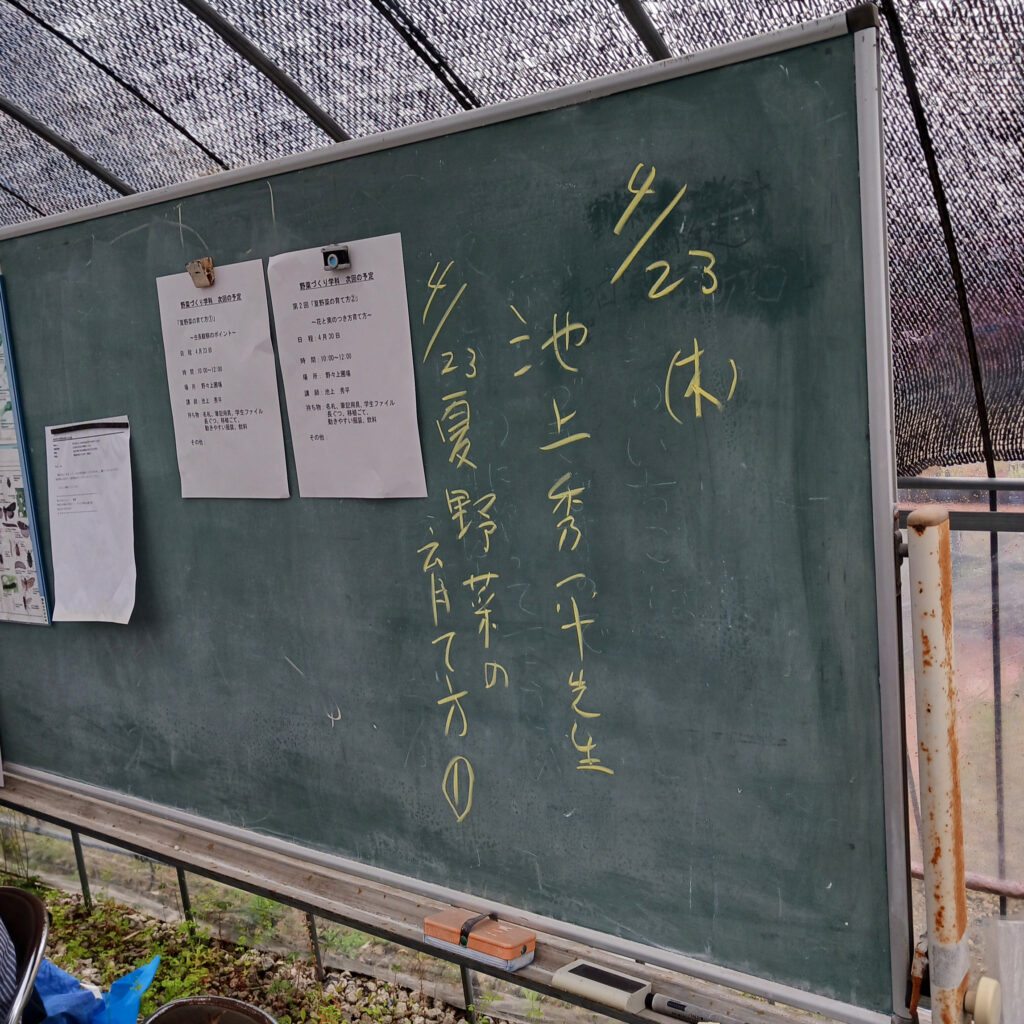 4/23
(木)
池上秀平先生
4/23 夏野菜の
育て方①
野菜づくり学科 次回の予定
第2回「夏野菜の育て方②」
~花と実のつき方育て方~
日 程:4月30日
時 間:10:00~12:00
場 所: 野々上圃場
講 師:池上 秀平
持ち物:名札、筆記用具、学生ファイル
長ぐつ、移植ごて、
動きやすい服装、飲料
その他:
野菜づくり学科 次回の予定
「夏野菜の育て方①」
~生長観察のポイント~
日 程:4月23日
時 間:10:00~12:00
場 所:野々上圃場
講 師:池上 秀平
持ち物:名札、筆記用具、学生ファイル
長ぐつ、移植ごて、
動きやすい服装、飲料
その他